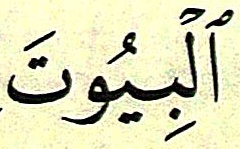 ٱلْبِيُوتَ